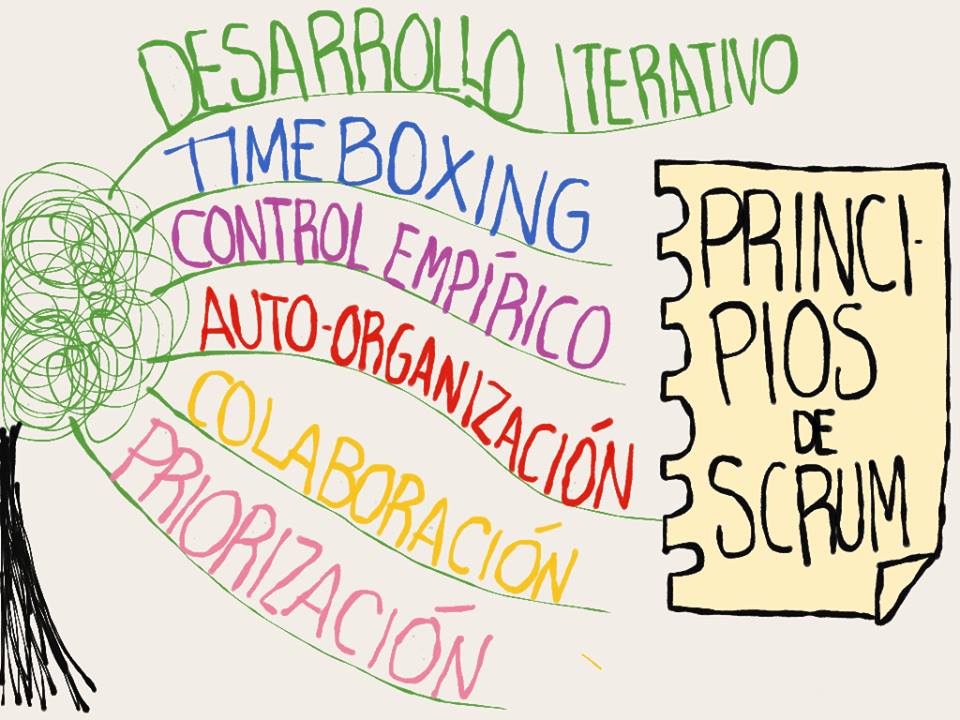 DESARROLLO ITERATIVO
TIMEBOXING
CONTROL EMPÍRICO
AUTO-ORGANIZACIÓN
COLABORACIÓN
PRIORIZACIÓN
PRINCI-
PIOS
DE
SCRUM